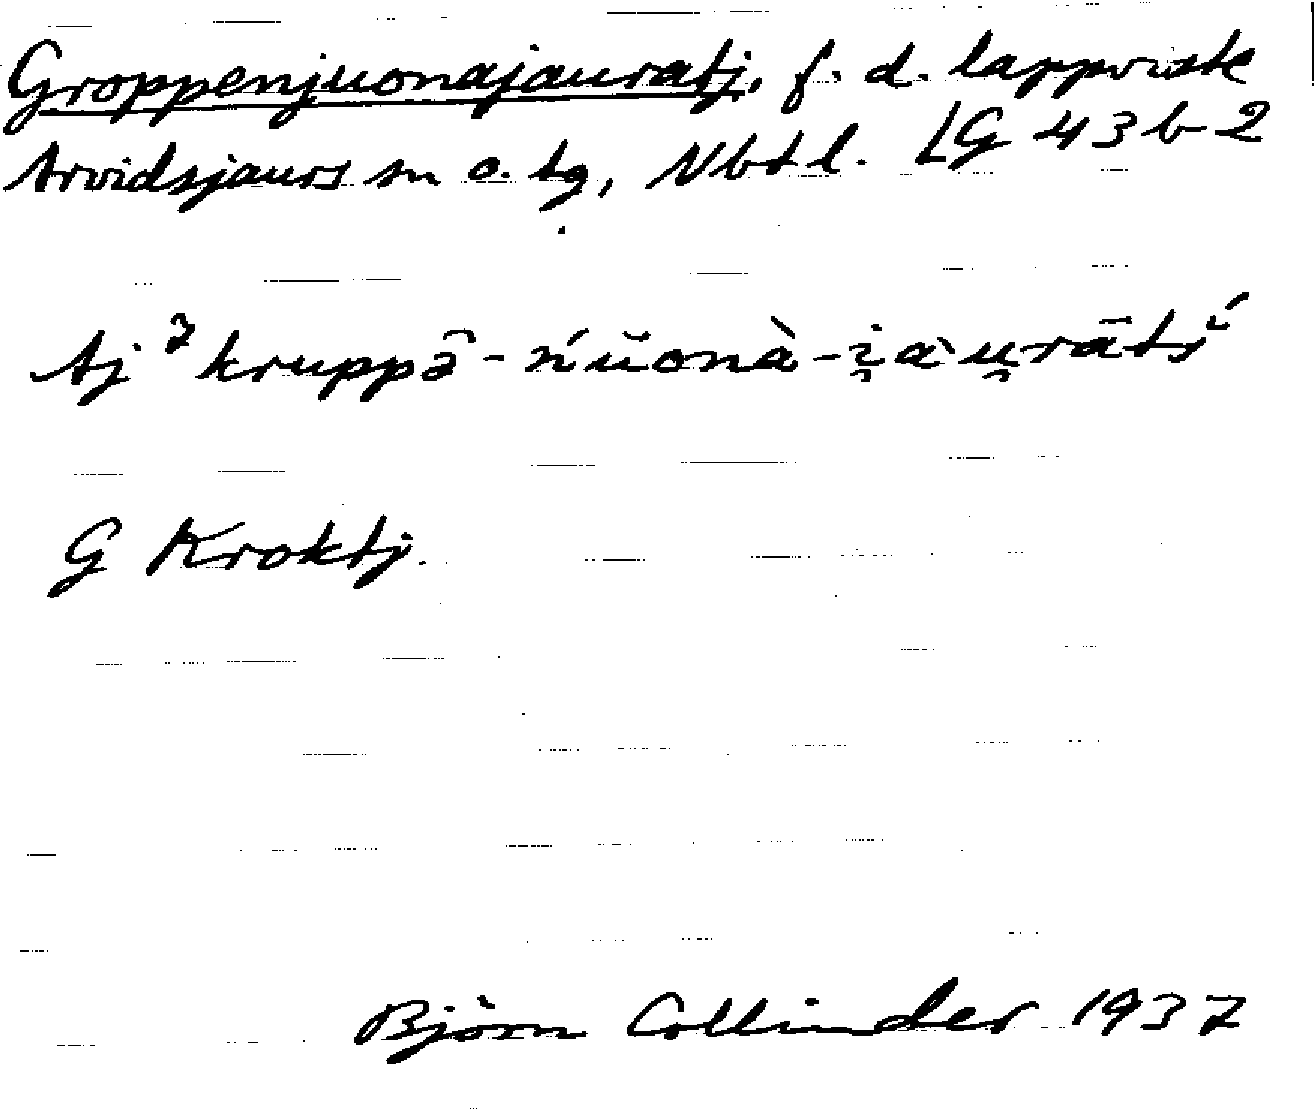 Groppenjuonajauratj, f. d. lappvistе
Arvidsjaurs sn o. tg, Nbtl. LG 43 b-2
Aj ²kruppə̑-ńŭonà-i̯àu̯rātš́
G Kroktj.
Björn Collinder 1937